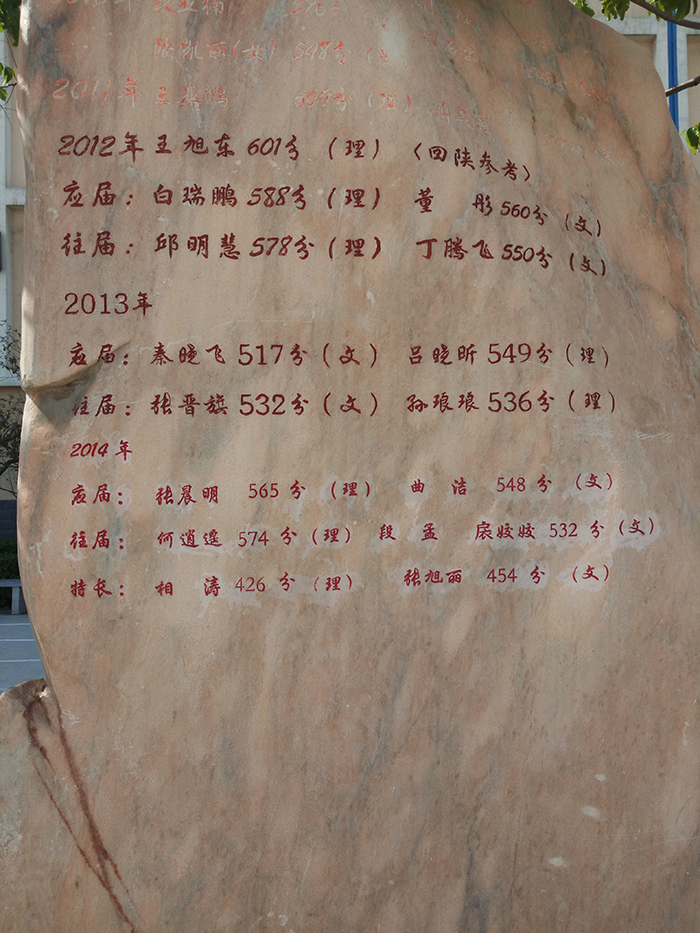 (女) 548分
2011年 王 鹏 609分 (理)
2012年 王旭东 601分 (理) 〈回陕参考〉
应届: 白瑞鹏 588分 (理) 董 彤 560分 (文)
往届: 邱明慧 578分 (理) 丁腾飞 550分 (文)
2013年
应届: 秦晓飞 517分 (文) 吕晓昕 549分 (理)
往届: 张晋旗 532分 (文) 孙琅琅 536分 (理)
2014年
应届: 张晨明 565分 (理) 曲 洁 548分 (文)
往届: 何逍遥 574分 (理) 段 孟 扆姣姣 532分 (文)
特长: 相 涛 426分 (理) 张旭丽 454分 (文)